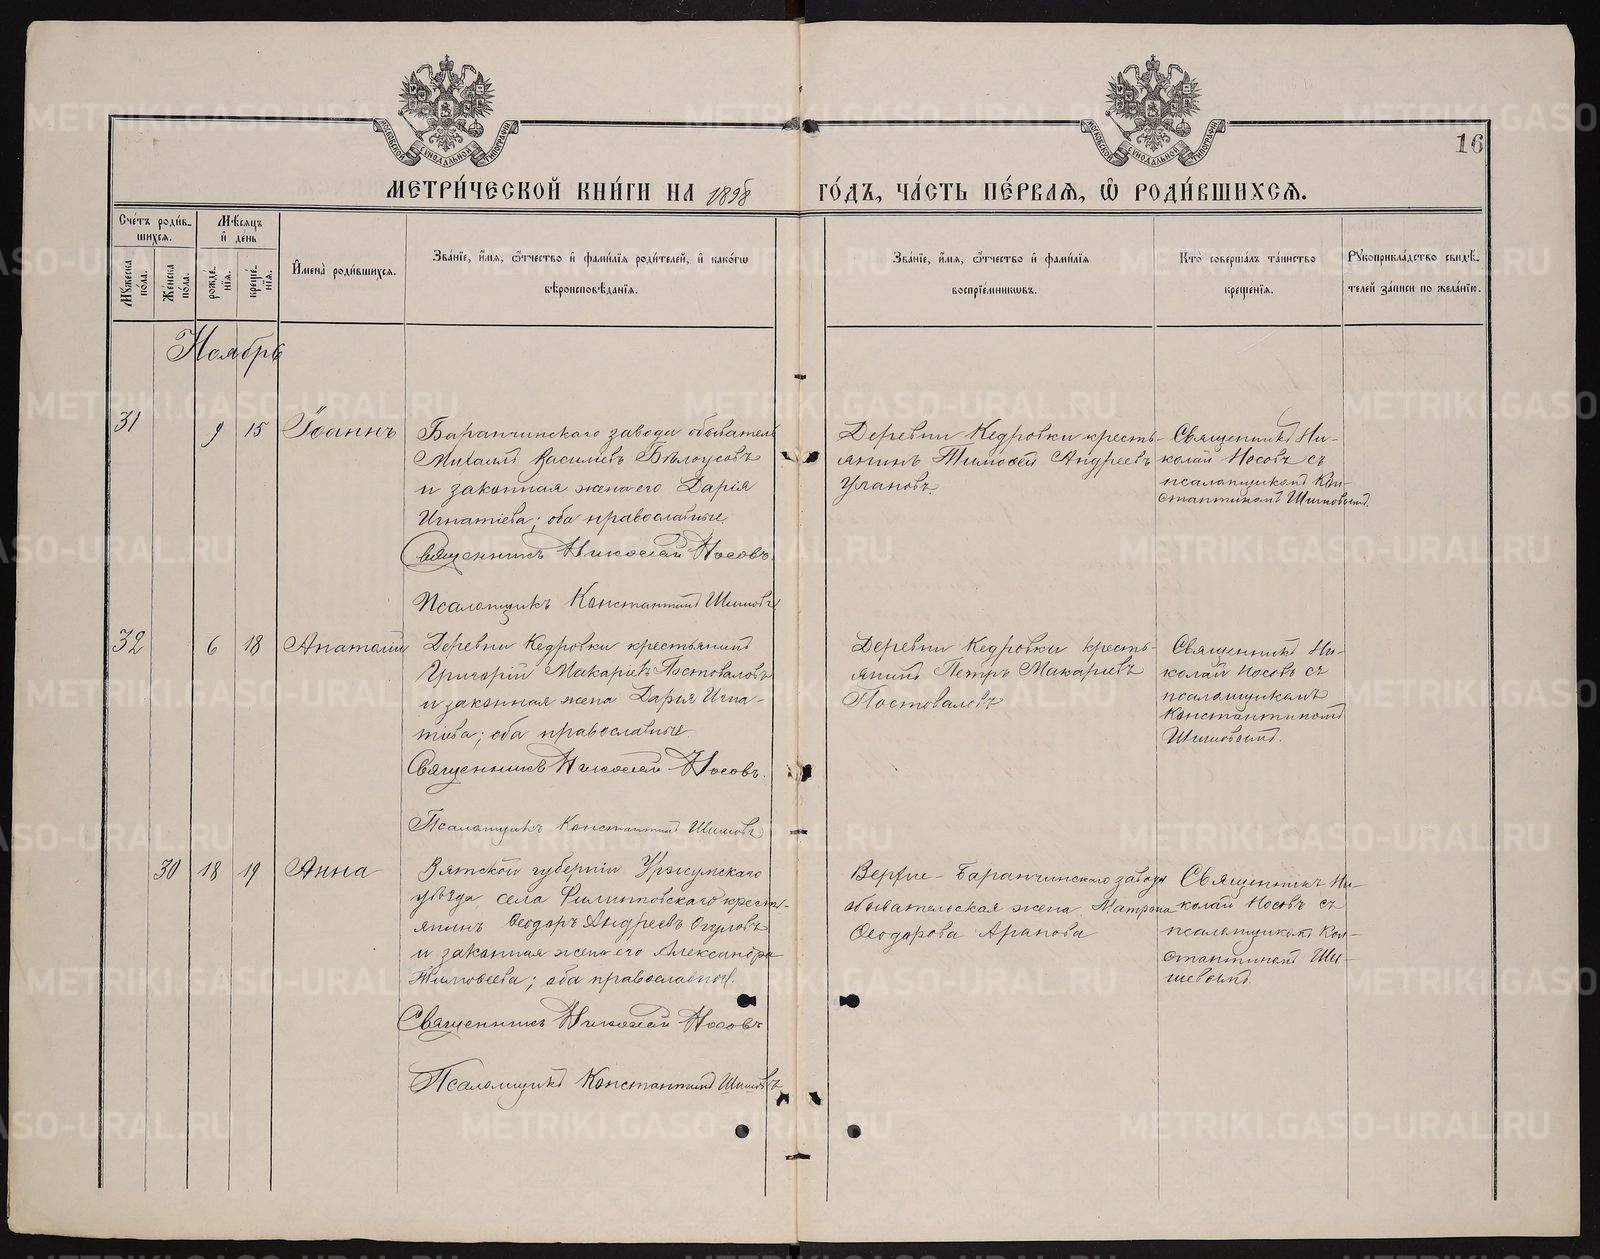 МОСКОВСКОЙ СѴНОДАЛЬНОЙ ТИПОГРАФІИ
МОСКОВСКОЙ СѴНОДАЛЬНОЙ ТИПОГРАФІИ
16
МЕТРИ́ЧЕСКОЙ КНИ́ГИ НА 1898 ГО́ДЪ, ЧА́СТЬ ПЕ́РВАѦ, Ѽ РОДИ́ВШИХСѦ.
Сче́тъ роди́в-
шихсѧ.
Мꙋ́жеска по́ла.
Же́нска по́ла.
Мѣ́сѧцъ
и҆ де́нь
рожде́-
нїѧ.
креще́-
нїѧ.
И҆мена̀ роди́вшихсѧ.
Зва́нїе, и҆́мѧ, ѻ҆́тчество и҆ фамилїѧ роди́телей, и҆ како́гѡ
вѣроисповѣ́данїѧ.
Зва́нїе, и҆́мѧ, ѻ҆́тчество и҆ фамилїѧ
воспрїе́мникѡвъ.
Кто̀ соверша́лъ та́инство
креще́нїѧ.
Рꙋкоприкла́дство свидѣ́-
телей за́писи по жела́нїю.
Ноябрь
31 9 15 Іоаннъ
Баранчинскаго завода обыватель
Михаилъ Васильевъ Бѣлоусовъ
и законная жена его Дарія
Игнатіева; оба православные.
Священникъ Николай Носовъ.
Псаломщикъ Константинъ Шишовъ
Деревни Кедровки кресть-
янинъ Тимоѳей Андреевъ
Улановъ.
Священникъ Ни-
колай Носовъ съ
псаломщикомъ Кон-
стантиномъ Шишовымъ.
32 6 18 Анатолій
Деревни Кедровки крестьянинъ
Григорій Макаріевъ Постоваловъ
и законная жена Дарья Игна-
тіева; оба православные.
Священникъ Николай Носовъ.
Псаломщикъ Константинъ Шишовъ
Деревни Кедровки кресть-
янинъ Петръ Макаріевъ
Постоваловъ
Священникъ Ни-
колай Носовъ съ
псаломщикомъ
Константиномъ
Шишовымъ.
30 18 19 Анна
Вятской губерніи Уржумскаго
уѣзда села Филипповскаго кресть-
янинъ Ѳеодоръ Андреевъ Огуловъ
и законная жена его Александра
Тимоѳеева; оба православные.
Священникъ Николай Носовъ
Псаломщикъ Константинъ Шишовъ
Верхне-Баранчинскаго завода
обывательская жена Матрона
Ѳеодорова Арапова
Священникъ Ни-
колай Носовъ съ
псаломщикомъ Кон-
стантиномъ Ши-
шовымъ.
METRIKI.GASO-URAL.RU